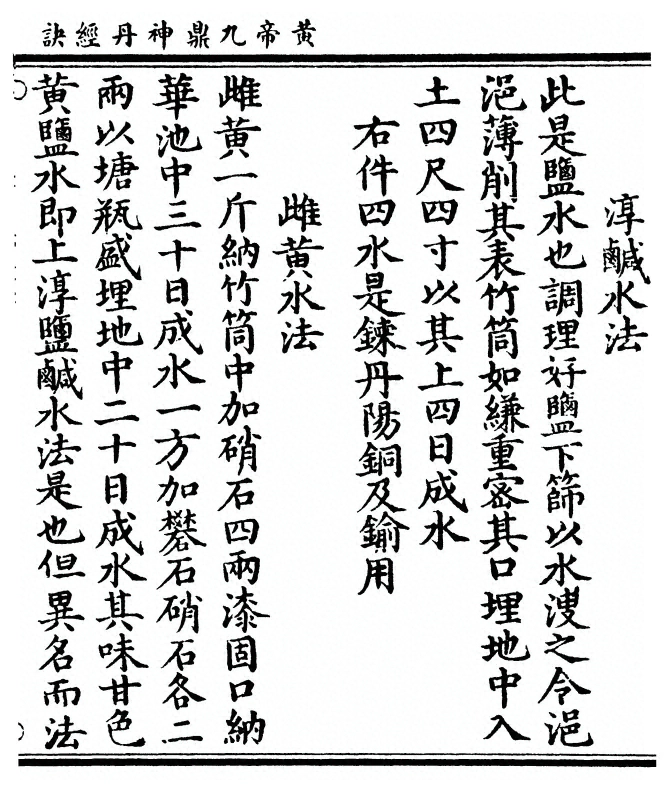 黃帝九鼎神丹經訣
淳鹹水法
此是鹽水也調理好鹽下篩以水溲之令浥
浥薄削其表竹筒如縑重密其口埋地中入
土四尺四寸以其上四日成水
右件四水是鍊丹陽銅及鍮用
雌黃水法
雌黃一斤納竹筒中加硝石四兩漆固口納
華池中三十日成水一方加礬石硝石各二
兩以塘瓶盛埋地中二十日成水其味甘色
黃鹽水即上淳鹽鹹水法是也但異名而法